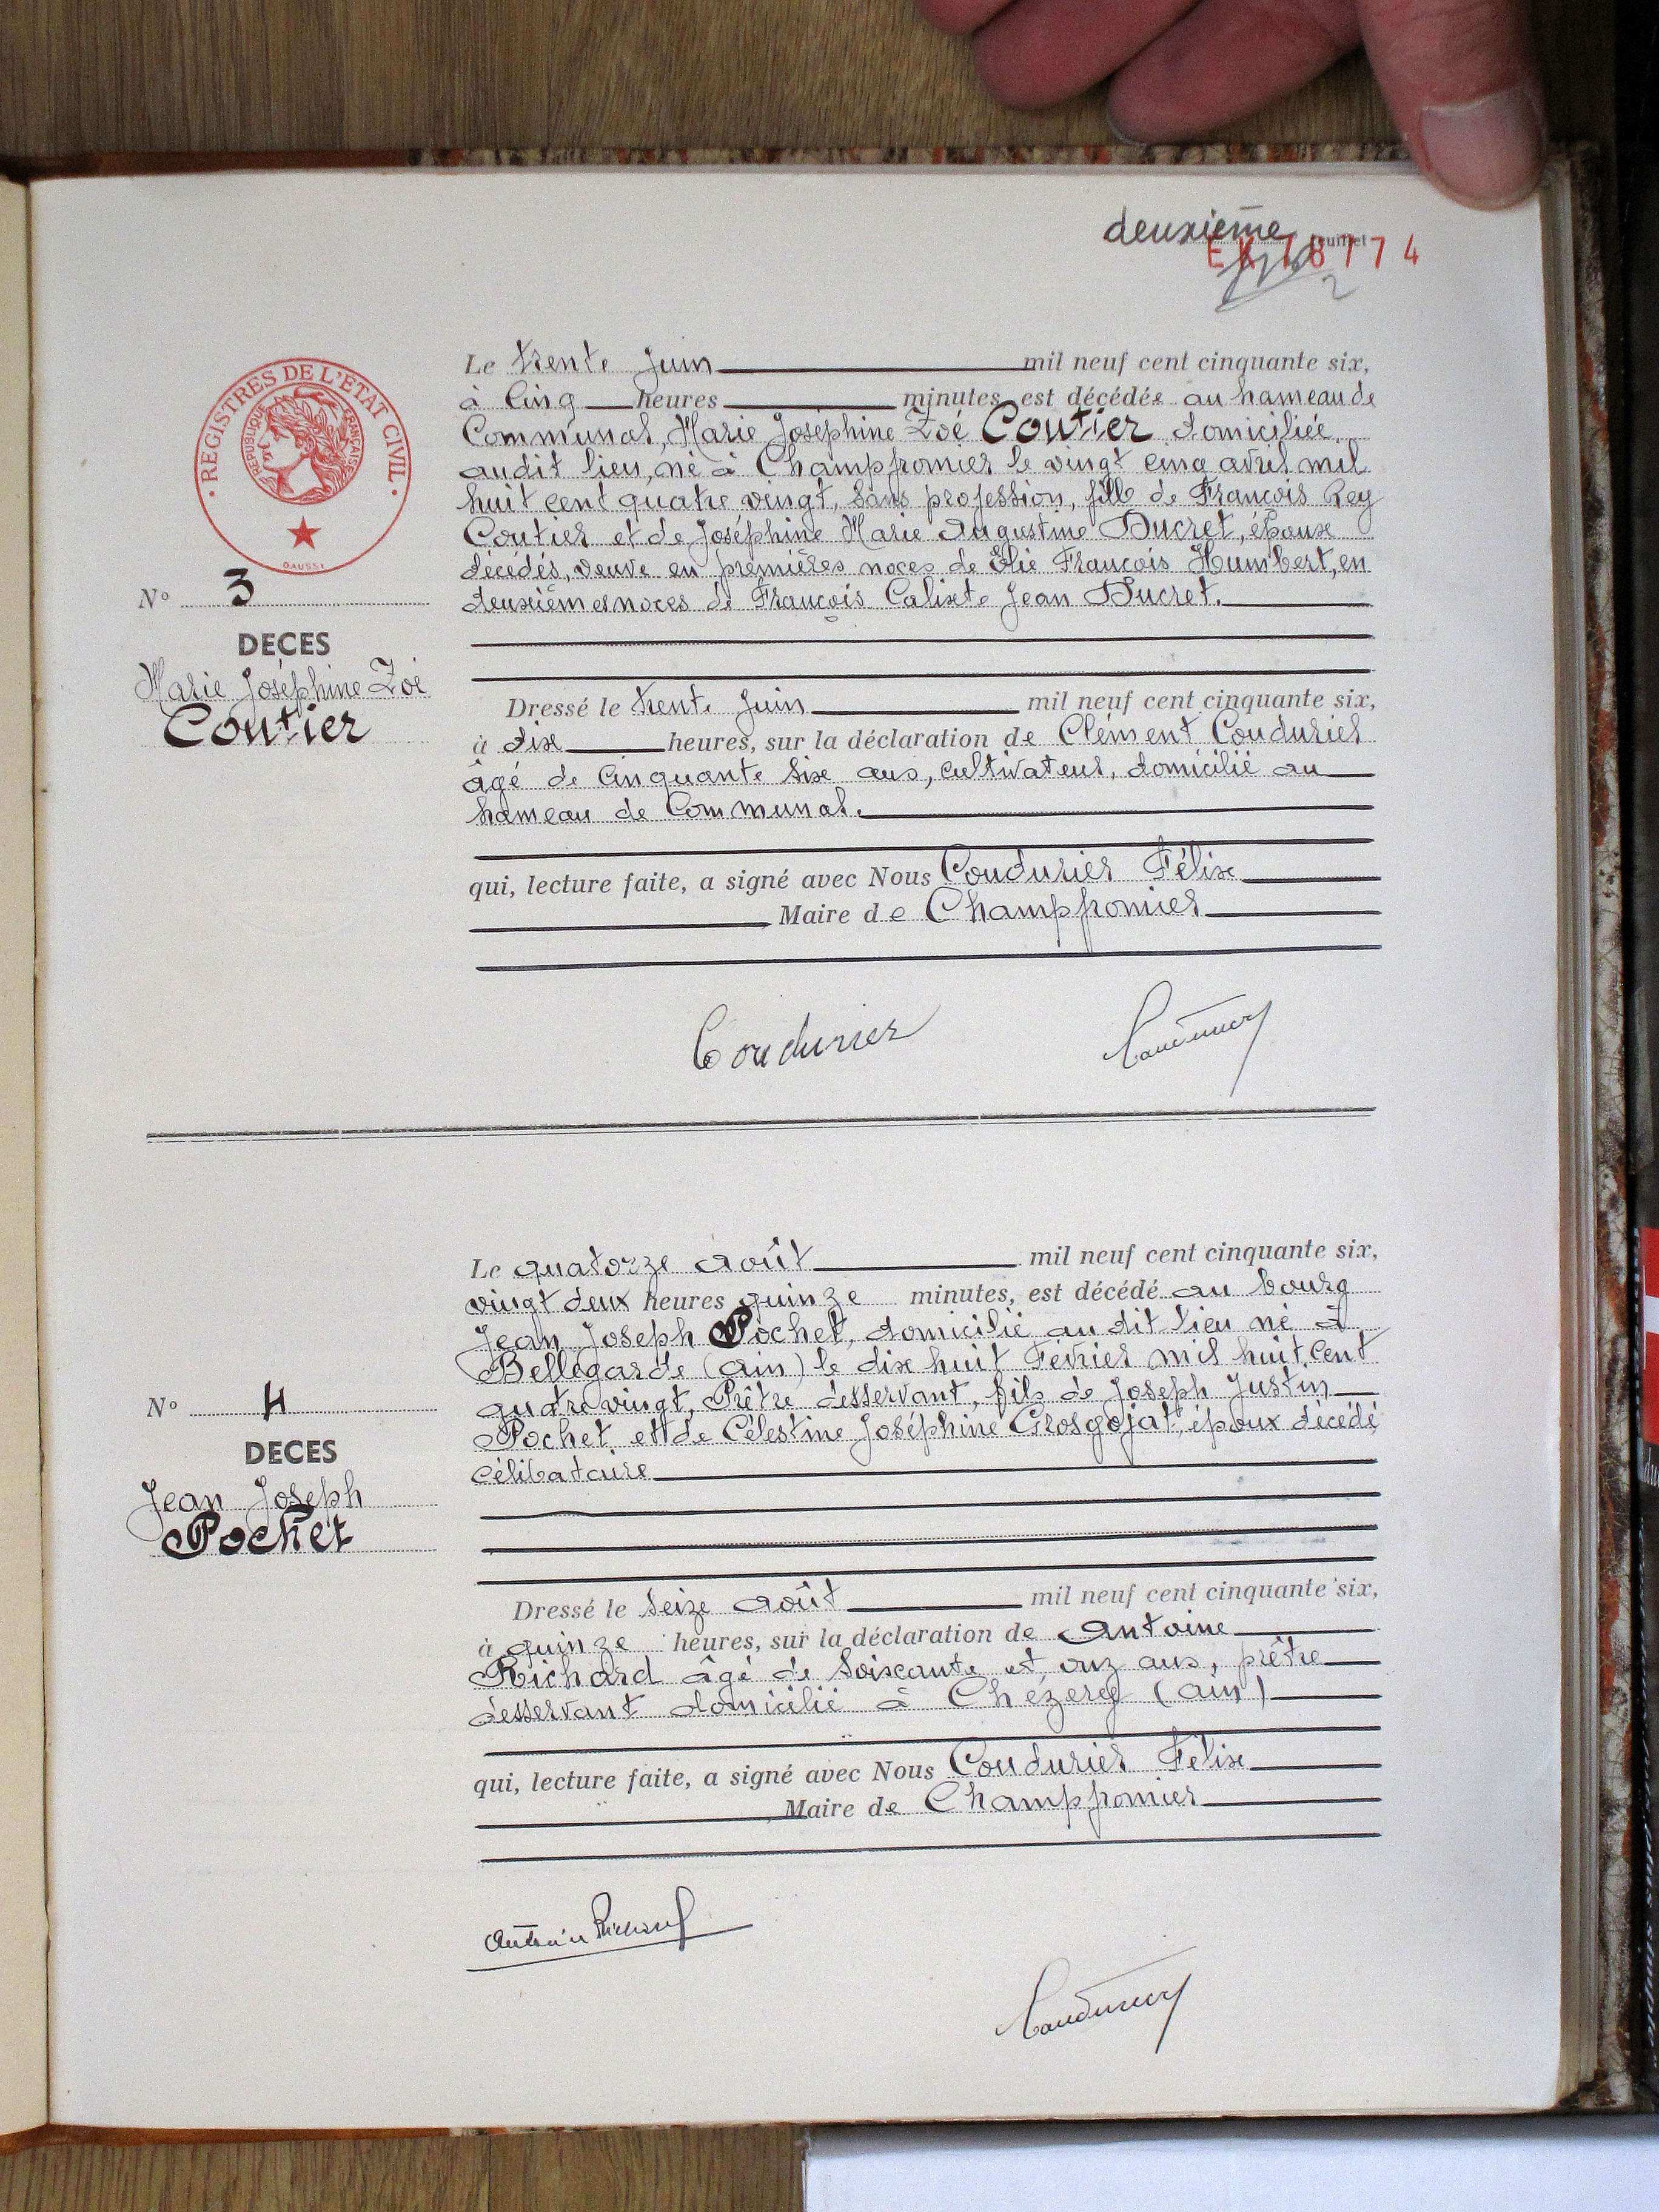 deuxième feuillet
EK 78774
2
REGISTRES DE L'ETAT CIVIL
REPUBLIQUE FRANÇAISE
DAUSSY
N° 3
DECES
Marie Joséphine Zoé
Coutier
Le trente Juin mil neuf cent cinquante six,
à Cinq heures minutes est décédée au hameau de
Communal, Marie Joséphine Zoé Coutier domiciliée
audit lieu, né à Champfromier le vingt cinq avril mil
huit cent quatre vingt, sans profession, fille de François Rey
Coutier et de Joséphine Marie Augustine Ducret, époux
décédés, veuve en premières noces de Elie François Humbert, en
deuxièmes noces de François Calixte Jean Ducret.
Dressé le trente Juin mil neuf cent cinquante six,
à dix heures, sur la déclaration de Clément Coudurier
âgé de Cinquante six ans, cultivateur, domicilié au
hameau de Communal.
qui, lecture faite, a signé avec Nous Coudurier Félix
Maire de Champfromier
Coudurier
N° 4
DECES
Jean Joseph
Pochet
Le quatorze août mil neuf cent cinquante six,
vingt deux heures quinze minutes, est décédé au bourg
Jean Joseph Pochet, domicilié au dit lieu né à
Bellegarde (ain) le dix huit Février mil huit cent
quatre vingt, Prêtre desservant, fils de Joseph Justin
Pochet et de Célestine Joséphine Grosgojat, époux décédé
célibataire
Dressé le seize août mil neuf cent cinquante six,
à quinze heures, sur la déclaration de Antoine
Richard âgé de soixante et onz ans, prêtre
desservant domicilié à Chézery (ain)
qui, lecture faite, a signé avec Nous Coudurier Félix
Maire de Champfromier
Antoine Richard